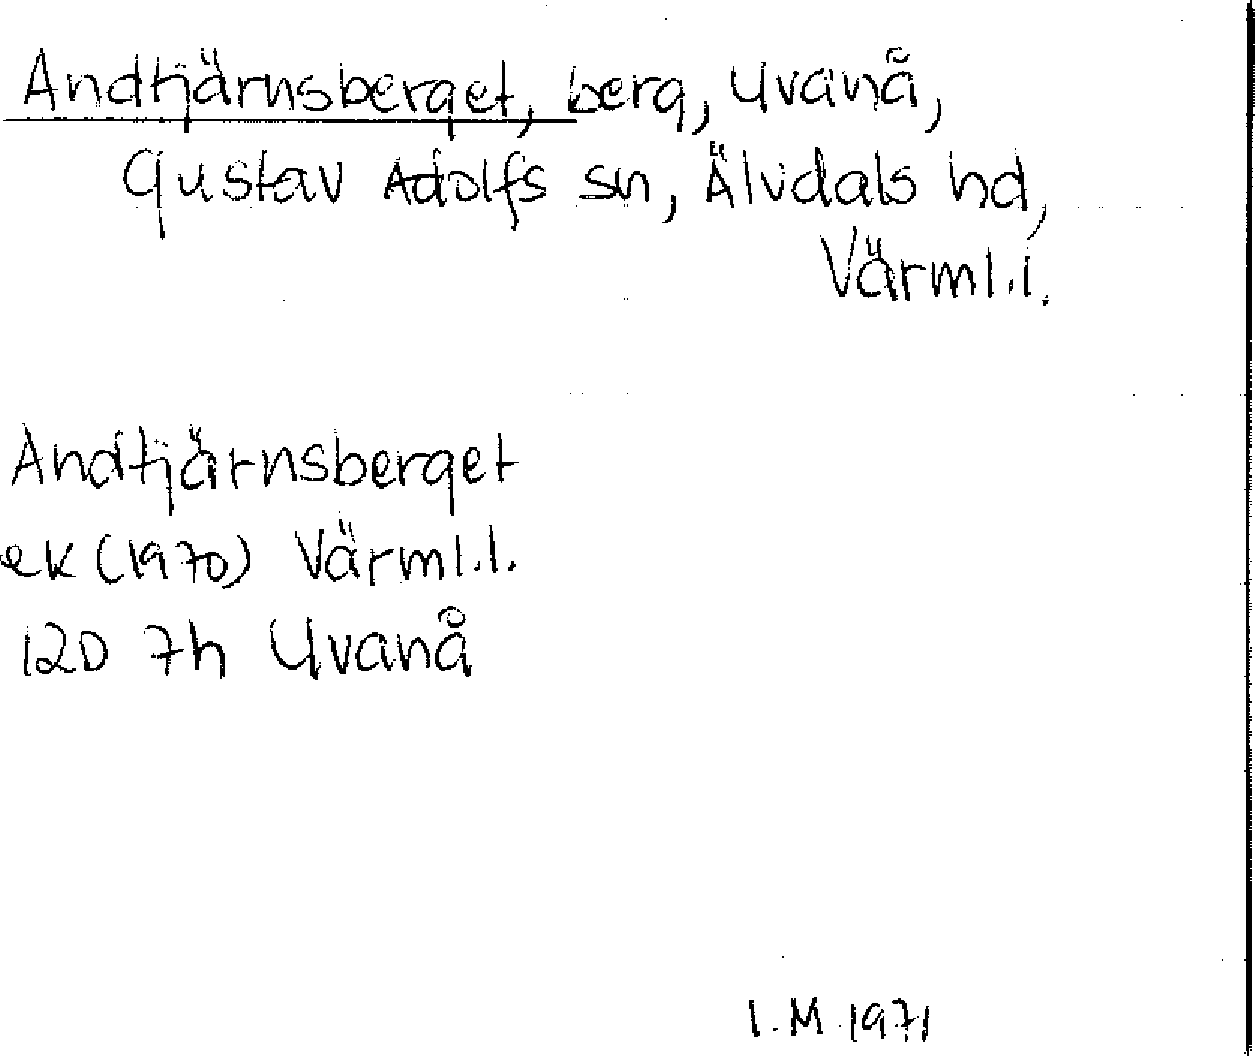 Andtjärnsberget, berg, Uvanå,
Gustav Adolfs sn, Älvdals hd,
Värml.l.
Andtjärnsberget
ek (1970) Värml.l.
12D 7h Uvanå
I.M. 1971